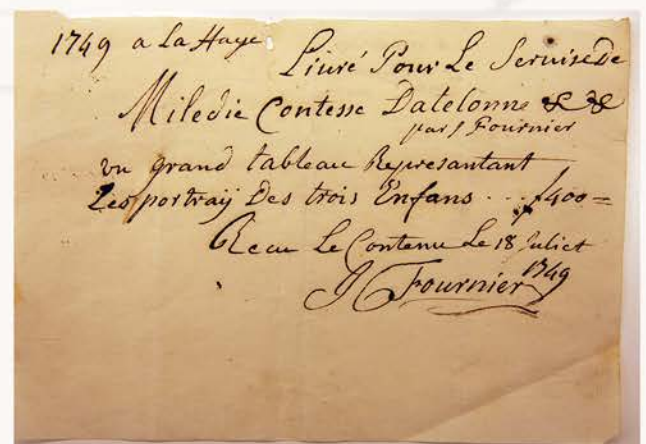 1749 a La Haye
Liuré Pour Le Seruise De
Miledie Contesse Datelonne & &
par J Fournier
vn grand tableau Represantant
Les portray Des trois Enfans . . . f400=
Recu Le Contenu Le 18 Juliet
1749
J Fournier